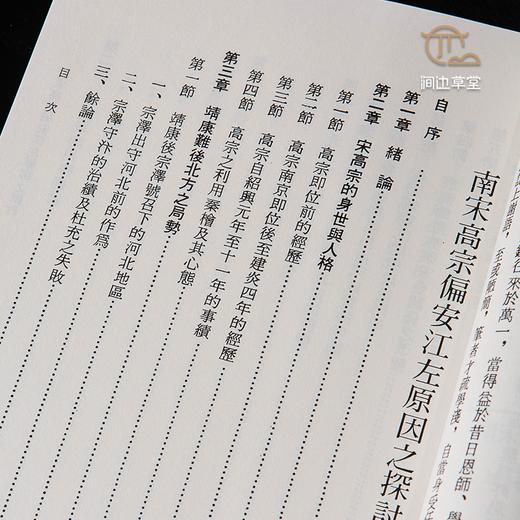 澗边草堂
來於萬一，當得益於昔日恩師、學
筆者才疏學淺，自當
南宋高宗偏安江左原因之探討
自序
第一章 緒論
第二章 宋高宗的身世與人格
第一節 高宗即位前的經歷
第二節 高宗南京即位後至建炎四年的經歷
第三節 高宗自紹興元年至十一年的事績
第四節 高宗之利用秦檜及其心態
第三章 靖康難後北方之局勢
第一節 靖康後宗澤號召下的河北地區
一、宗澤出守河北前的作為
二、宗澤守汴的治績及杜充之失敗
三、餘論
目次